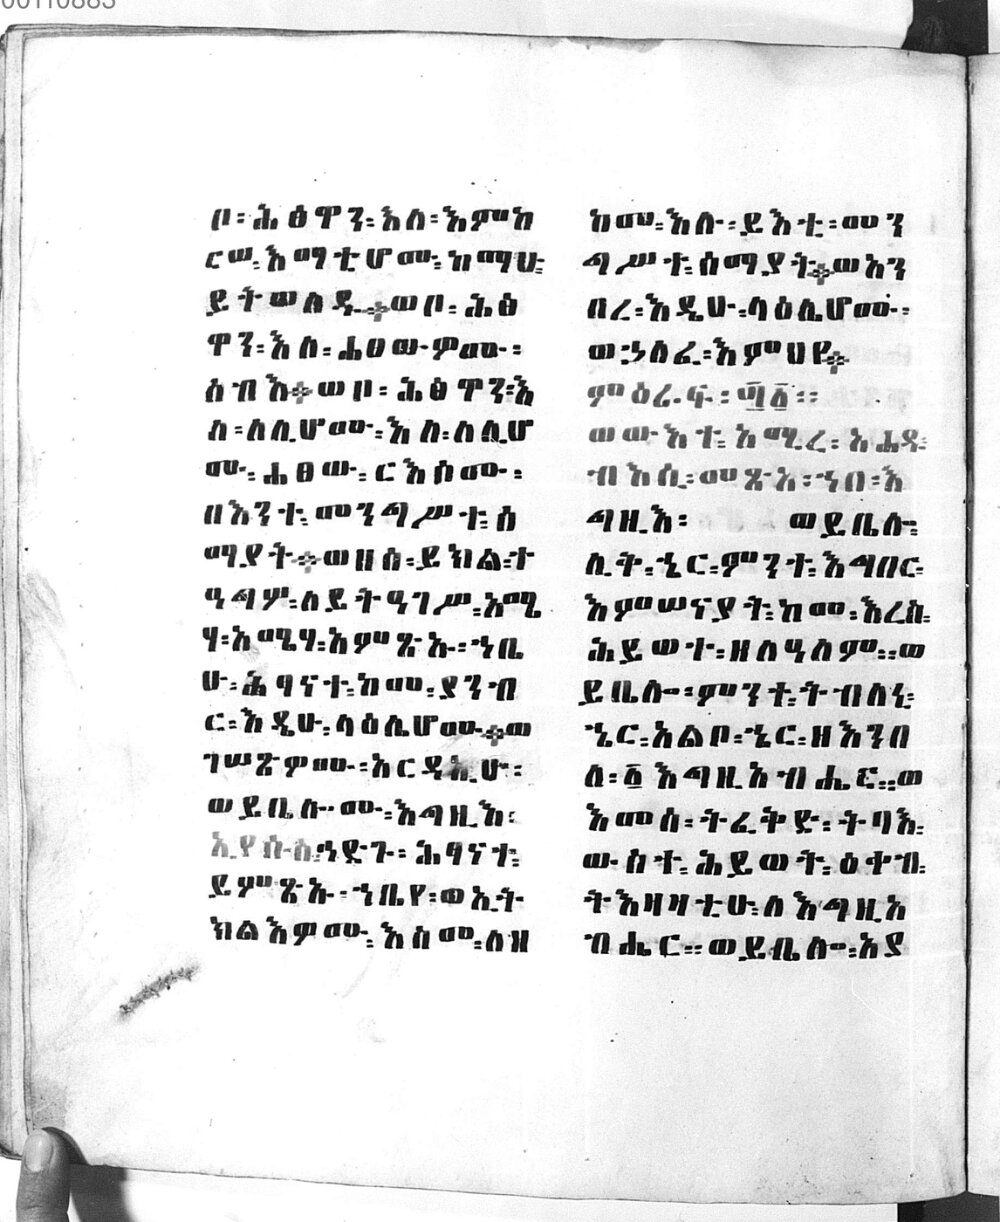 00110883
ቦ፡ሕፅዋን፡እለ፡እምከ
ርሠ፡እማቲሆሙ፡ከማሁ፡
ይትወለዱ፨ወቦ፡ሕፅ
ዋን፡እለ፡ሐፀውዎሙ፡
ሰብእ፨ወቦ፡ሕፅዋን፡እ
ለ፡ለሊሆሙ፡እለ፡ለሊሆ
ሙ፡ሐፀው፡ርእሶሙ፡
በእንተ፡መንግሥተ፡ሰ
ማያት፨ወዘሰ፡ይክል፡ተ
ዓግሦ፡ለይትዓገሥ፡አሜ
ሃ፡አሜሃ፡አምጽኡ፡ኀቤ
ሁ፡ሕፃናተ፡ከመ፡ያንብ
ር፡እዴሁ፡ላዕሌሆሙ፨ወ
ገሠጽዎሙ፡አርዳኢሁ፡
ወይቤሎሙ፡እግዚእ፡
ኢየሱስ፡ኅድጉ፡ሕፃናተ፡
ይምጽኡ፡ኀቤየ፡ወኢት
ክልእዎሙ፡እስመ፡ለዘ
ከመ፡እሉ፡ይእቲ፡መን
ግሥተ፡ሰማያት፨ወአን
በረ፡እዴሁ፡ላዕሌሆሙ፡
ወኃለፈ፡እምህየ፨
ምዕራፍ፡፵፩፡፡
ወውእተ፡አሚረ፡አሐዱ፡
ብእሲ፡መጽአ፡ኀበ፡እ
ግዚእ፡ ወይቤሎ፡
ሊቅ፡ኄር፡ምንተ፡እግበር፡
እምሠናያት፡ከመ፡እረስ፡
ሕይወተ፡ዘለዓለም።ወ
ይቤሎ፡ምንተ፡ትብለኒ፡
ኄር፡አልቦ፡ኄር፡ዘእንበ
ለ፡፩እግዚአብሔር።ወ
እመሰ፡ትፈቅድ፡ትባእ፡
ውስተ፡ሕይወት፡ዕቀብ፡
ትእዛዛቲሁ፡ለእግዚአ
ብሔር።ወይቤሎ፡አያ